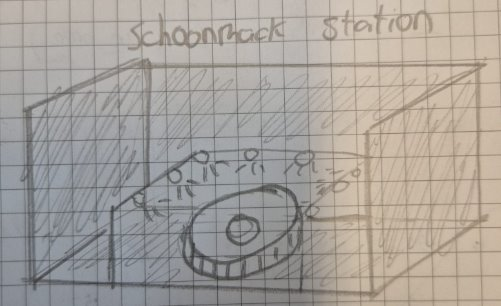 Schoonmack Station